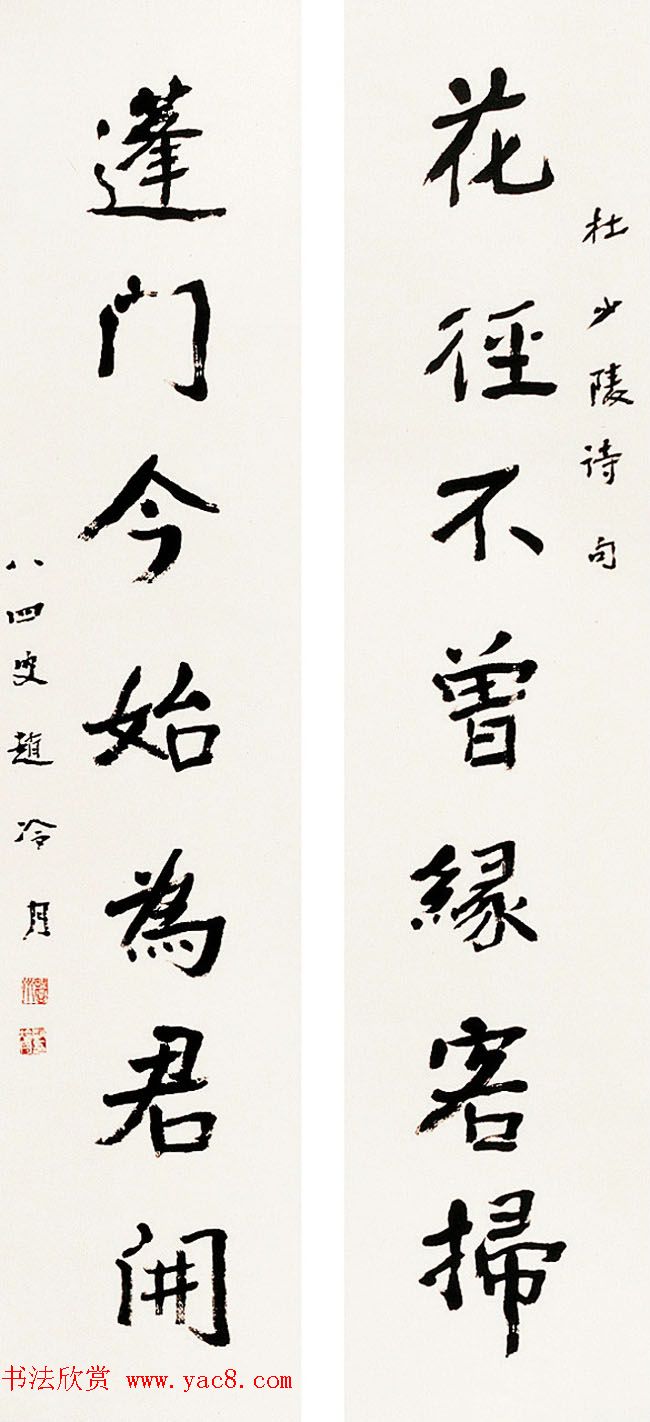 杜少陵诗句
花徑不曾緣客掃
蓬门今始為君開
八四叟趙冷月
书法欣赏 www.yac8.com